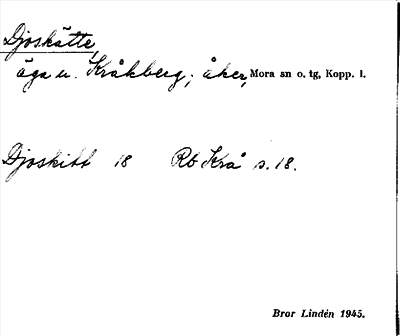 Djoskätte,
äga u. Kråkberg; åker, Mora sn o. tg, Kopp. l.
Djoskitt 18 Rb Krå s. 18.
Bror Lindén 1945.